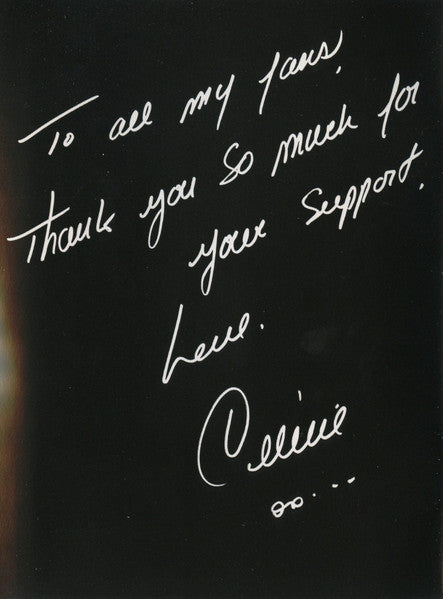 To all my fans,
Thank you so much for
your support.
Love.
Céline
oo...